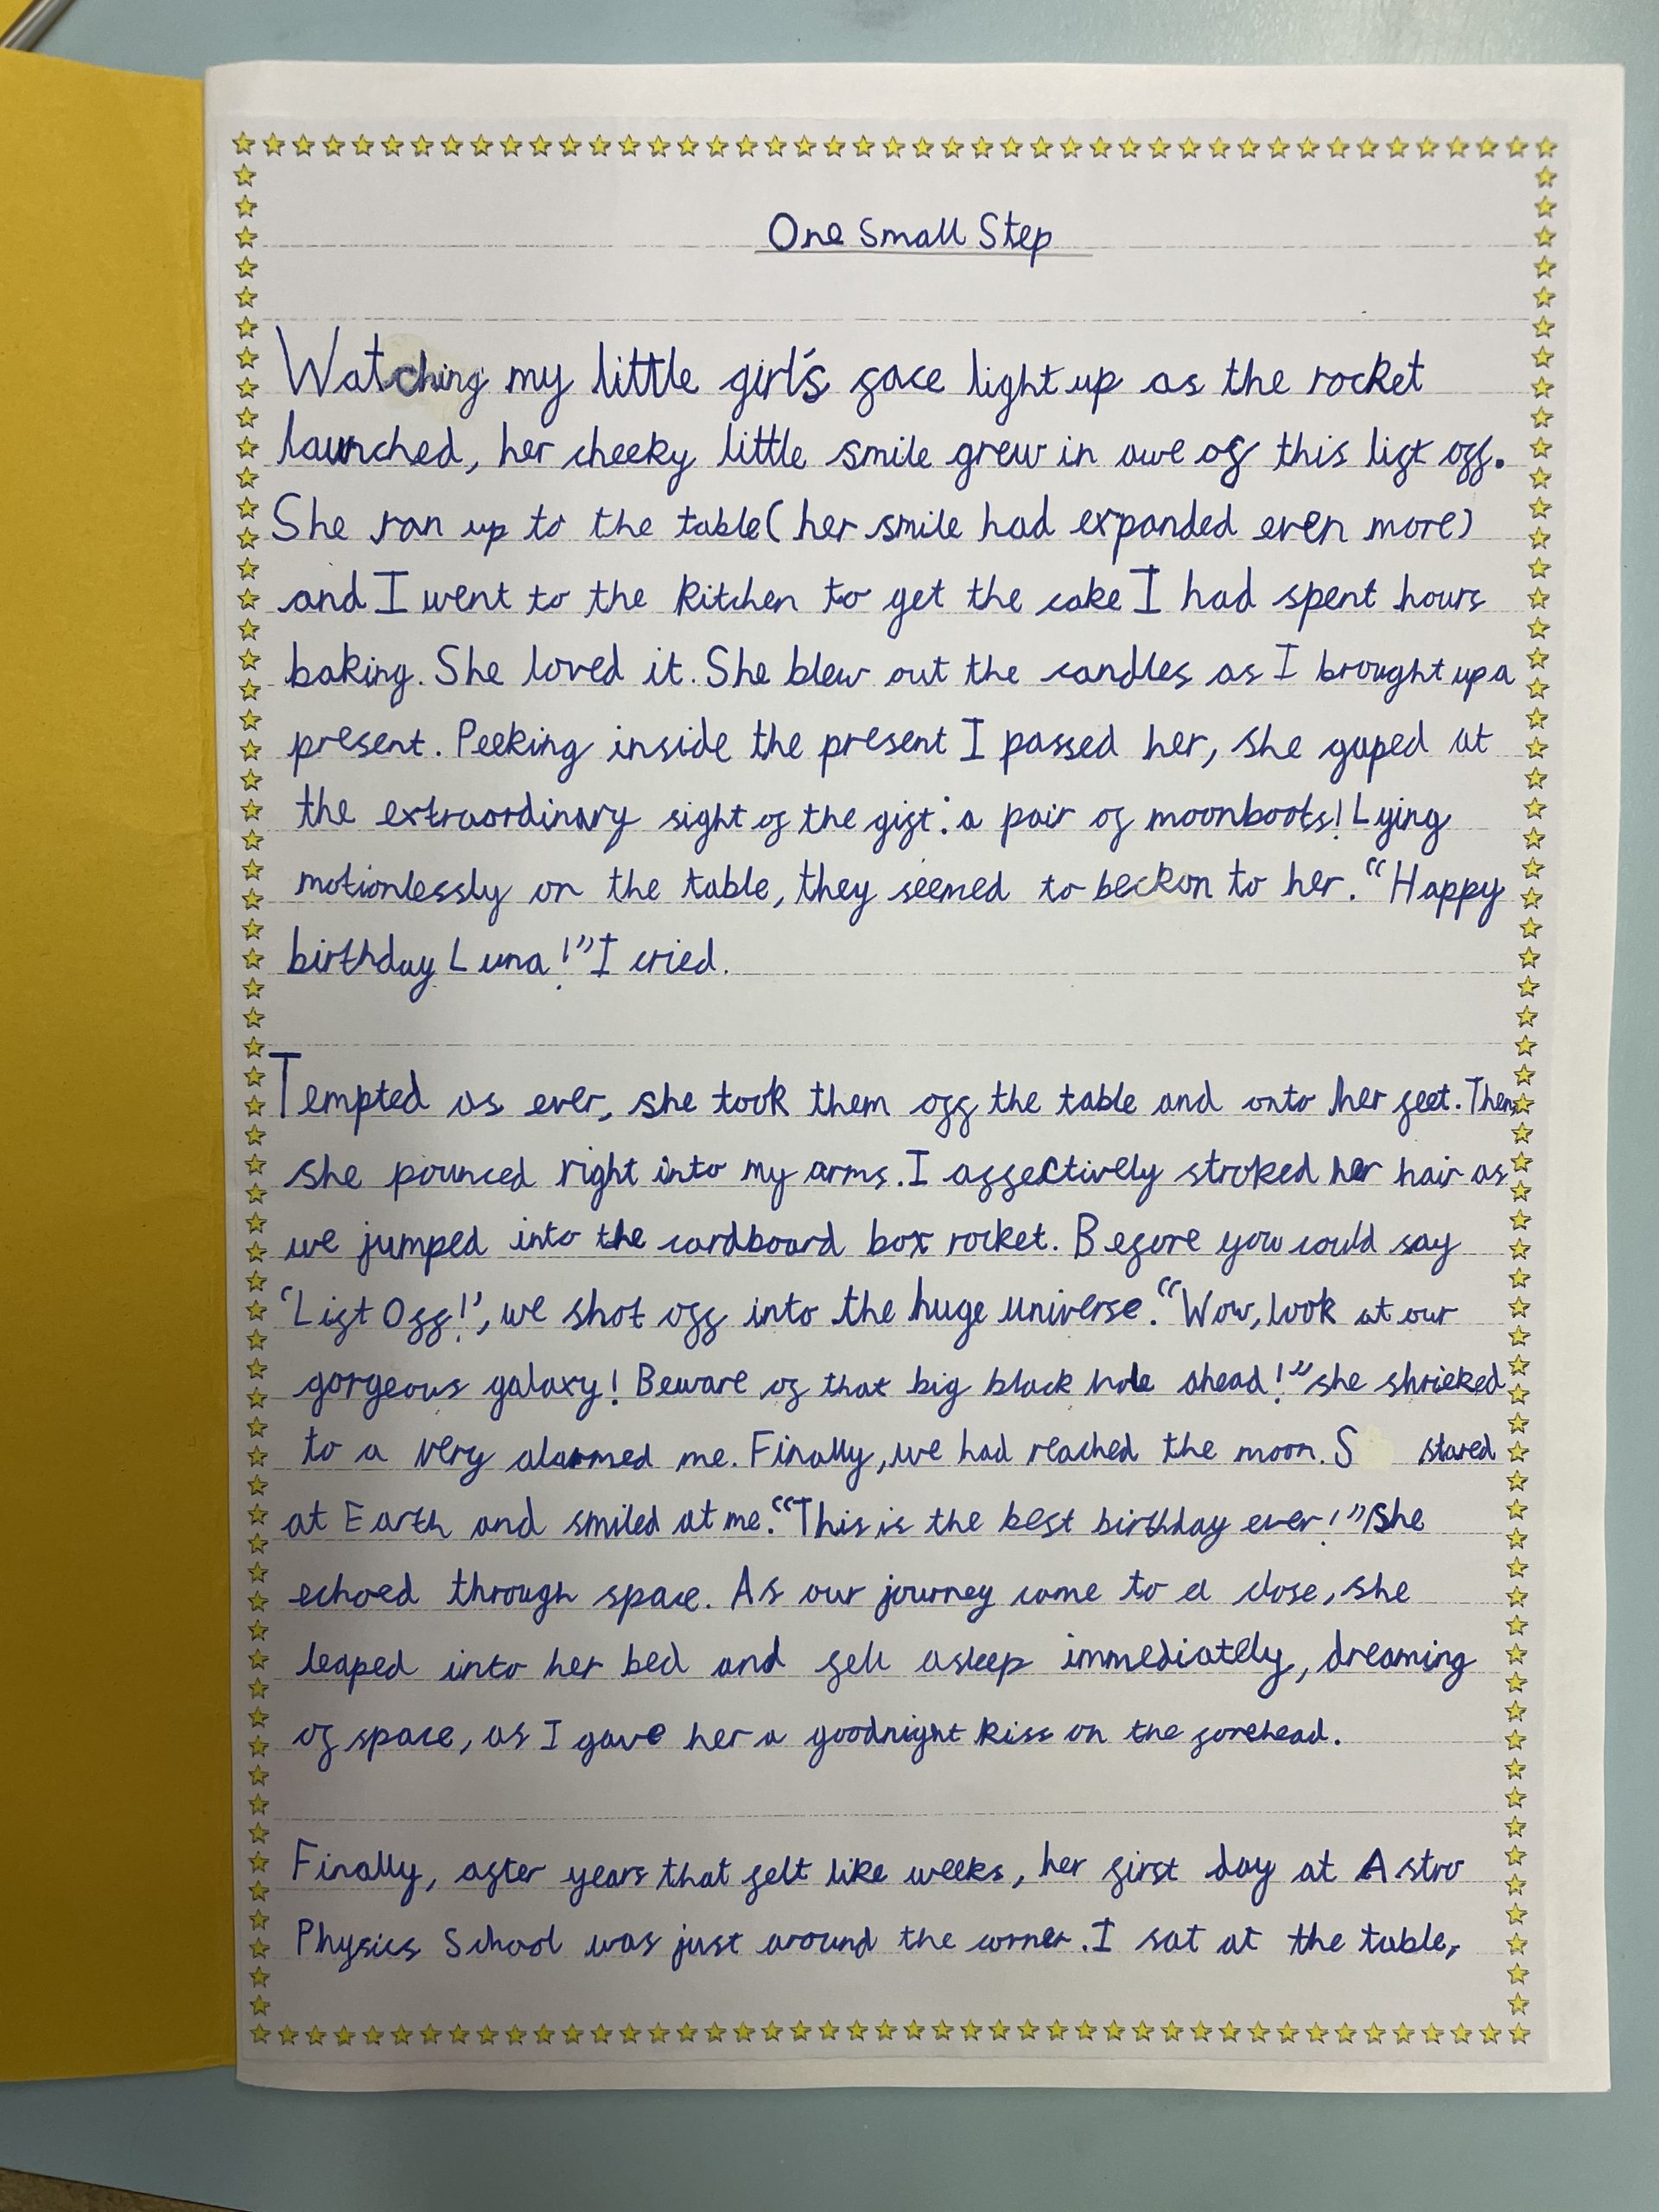 One Small Step
Watching my little girl's face light up as the rocket
launched, her cheeky little smile grew in awe of this lift off.
She ran up to the table (her smile had expanded even more)
and I went to the kitchen to get the cake I had spent hours
baking. She loved it. She blew out the candles as I brought up a
present. Peeking inside the present I passed her, she gaped at
the extraordinary sight of the gift: a pair of moonboots! Lying
motionlessly on the table, they seemed to beckon to her. "Happy
birthday Luna!" I cried.
Tempted as ever, she took them off the table and onto her feet. Then
she pounced right into my arms. I affectively stroked her hair as
we jumped into the cardboard box rocket. Before you could say
'Lift Off!', we shot off into the huge universe. "Wow, look at our
gorgeous galaxy! Beware of that big black hole ahead!" she shrieked
to a very alarmed me. Finally, we had reached the moon. S stared
at Earth and smiled at me. "This is the best birthday ever!" She
echoed through space. As our journey came to a close, she
leaped into her bed and fell asleep immediately, dreaming
of space, as I gave her a goodnight kiss on the forehead.
Finally, after years that felt like weeks, her first day at Astro
Physics School was just around the corner. I sat at the table,